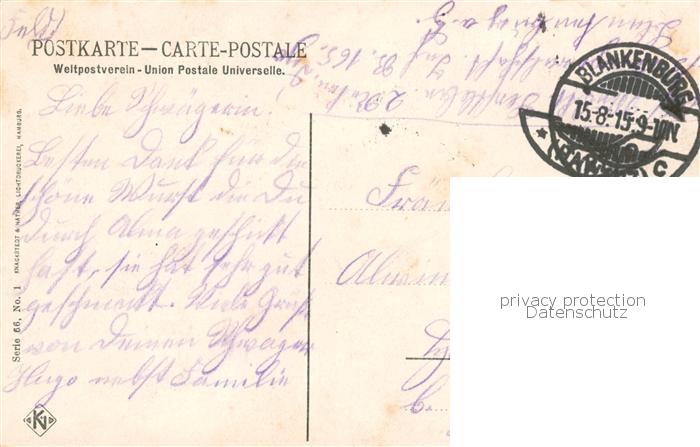 Feld
POSTKARTE — CARTE-POSTALE
Weltpostverein - Union Postale Universelle.
BLANKENBURG
15-8-15-9-10N
(HARZ) C
Liebe Schwägerin!
Besten Dank für die
schöne Wurst die Du
durch Alma geschickt
hast, sie hat sehr gut
geschmeckt. Viele Grüße
von Deinem Schwager
Hugo nebst Familie
Fräu
Alwin
Serie 66, No. 1 KNACKSTEDT & NÄTHER, LICHTDRUCKEREI, HAMBURG.
privacy protection
Datenschutz